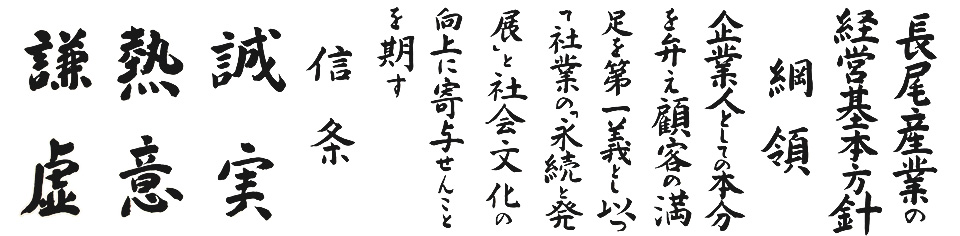 長尾産業の
経営基本方針
綱領
企業人としての本分
を弁え顧客の満
足を第一義とし以つ
て社業の「永続と発
展」と社会文化の
向上に寄与せんこと
を期す
信条
誠実
熱意
謙虚